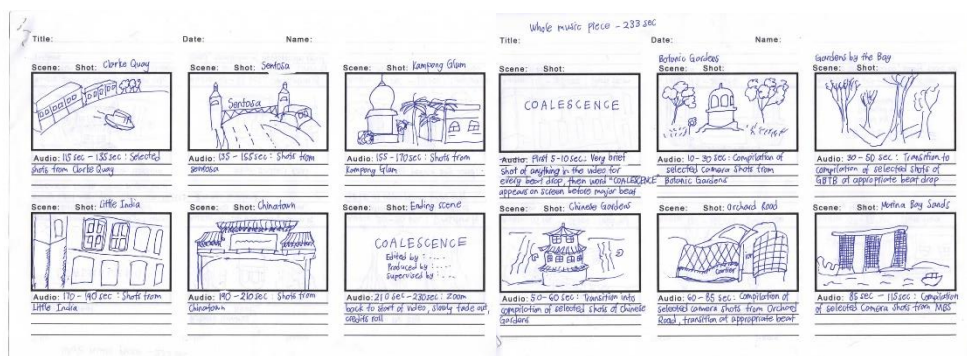 Title:
Date:
Name:
Scene: Shot: Clarke Quay
Audio: 115 sec - 135 sec: Selected
shots from Clarke Quay
Scene: Shot: Sentosa
Sentosa
Audio: 135 - 155 sec: Shots from
sentosa
Scene: Shot: Kampong Glam
Audio: 155 - 170 sec: Shots from
Kampong Glam
Scene: Shot: Little India
Audio: 170 - 190 sec: Shots from
Little India
Scene: Shot: Chinatown
Audio: 190 - 210 sec: Shots from
Chinatown
Scene: Shot: Ending scene
COALESCENCE
Edited by : ....
Produced by : ....
Supervised by : ....
Audio: 210 sec - 230 sec: Zoom
back to start of video, slowly fade out,
credits roll
Whole music piece - 233 sec
Title:
Date:
Name:
Scene: Shot:
COALESCENCE
Audio: First 5-10 sec: Very brief
shot of anything in the video for
every beat drop, then word "COALESCENCE"
appears on screen before major beat
Botanic Gardens
Scene: Shot:
Audio: 10 - 30 sec: Compilation of
selected camera shots from
Botanic Gardens
Gardens by the Bay
Scene: Shot:
Audio: 30 - 50 sec: Transition to
compilation of selected shots of
GBTB at appropriate beat drop
Scene: Shot: Chinese Gardens
Audio: 50 - 60 sec: Transition into
compilation of selected shots of Chinese
Gardens
Scene: Shot: Orchard Road
Audio: 60 - 85 sec: Compilation of
selected camera shots from Orchard
Road, transition at appropriate beat
Scene: Shot: Marina Bay Sands
Audio: 85 sec - 115 sec: Compilation
of selected camera shots from MBS